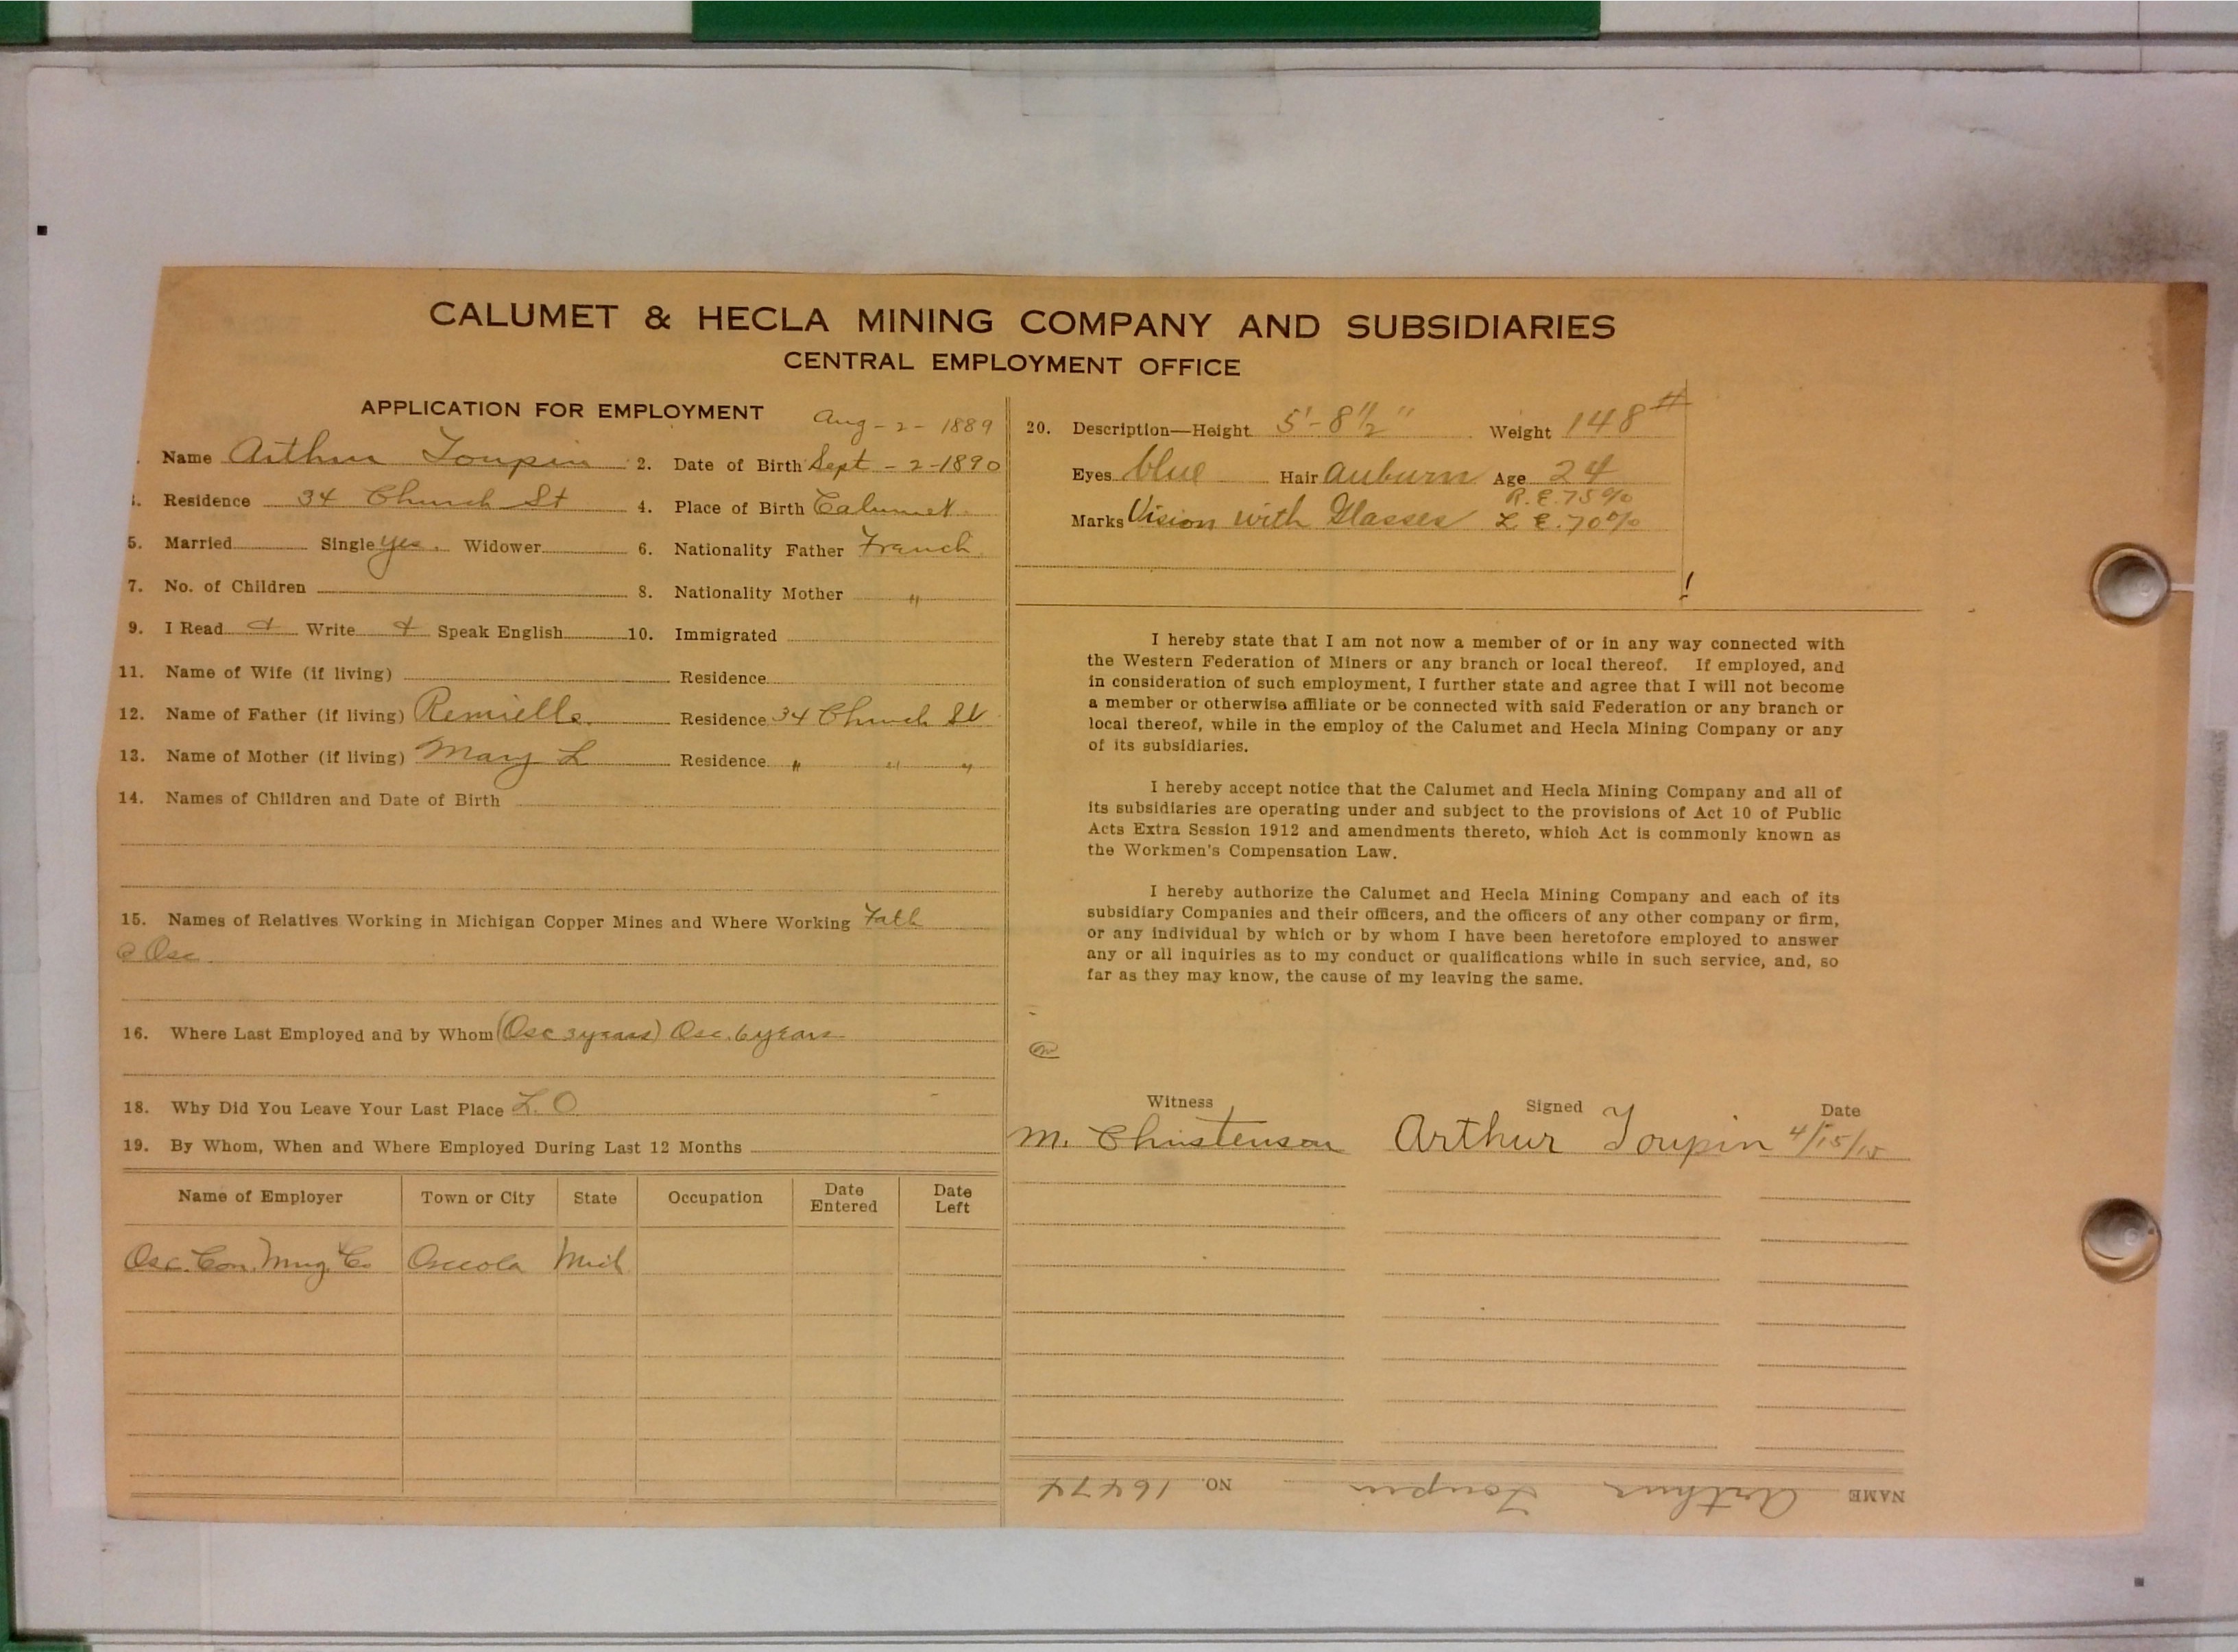 CALUMET & HECLA MINING COMPANY AND SUBSIDIARIES
CENTRAL EMPLOYMENT OFFICE
APPLICATION FOR EMPLOYMENT
Aug - 2 - 1889
Name Arthur Toupin 2. Date of Birth Sept - 2 - 1890
Residence 34 Church St 4. Place of Birth Calumet
5. Married Single yes. Widower 6. Nationality Father French
7. No. of Children 8. Nationality Mother "
9. I Read & Write & Speak English 10. Immigrated
11. Name of Wife (if living) Residence
12. Name of Father (if living) Residence 34 Church St
13. Name of Mother (if living) Mary L Residence " " "
14. Names of Children and Date of Birth
15. Names of Relatives Working in Michigan Copper Mines and Where Working Fath
@ Osc.
16. Where Last Employed and by Whom (Osc 3 years) Osc. 6 years
18. Why Did You Leave Your Last Place L. O.
19. By Whom, When and Where Employed During Last 12 Months
Name of Employer Town or City State Occupation Date Entered Date Left
Osc. Con. Mng. Co Osceola Mich
20. Description—Height 5'-8 1/2" Weight 148 #
Eyes blue Hair auburn Age 24
R.E. 75%
Marks Vision with Glasses L.E. 70%
I hereby state that I am not now a member of or in any way connected with
the Western Federation of Miners or any branch or local thereof. If employed, and
in consideration of such employment, I further state and agree that I will not become
a member or otherwise affiliate or be connected with said Federation or any branch or
local thereof, while in the employ of the Calumet and Hecla Mining Company or any
of its subsidiaries.
I hereby accept notice that the Calumet and Hecla Mining Company and all of
its subsidiaries are operating under and subject to the provisions of Act 10 of Public
Acts Extra Session 1912 and amendments thereto, which Act is commonly known as
the Workmen's Compensation Law.
I hereby authorize the Calumet and Hecla Mining Company and each of its
subsidiary Companies and their officers, and the officers of any other company or firm,
or any individual by which or by whom I have been heretofore employed to answer
any or all inquiries as to my conduct or qualifications while in such service, and, so
far as they may know, the cause of my leaving the same.
Witness Signed Date
M. Christenson Arthur Toupin 4/15/15
NAME Arthur Toupin NO. 16474